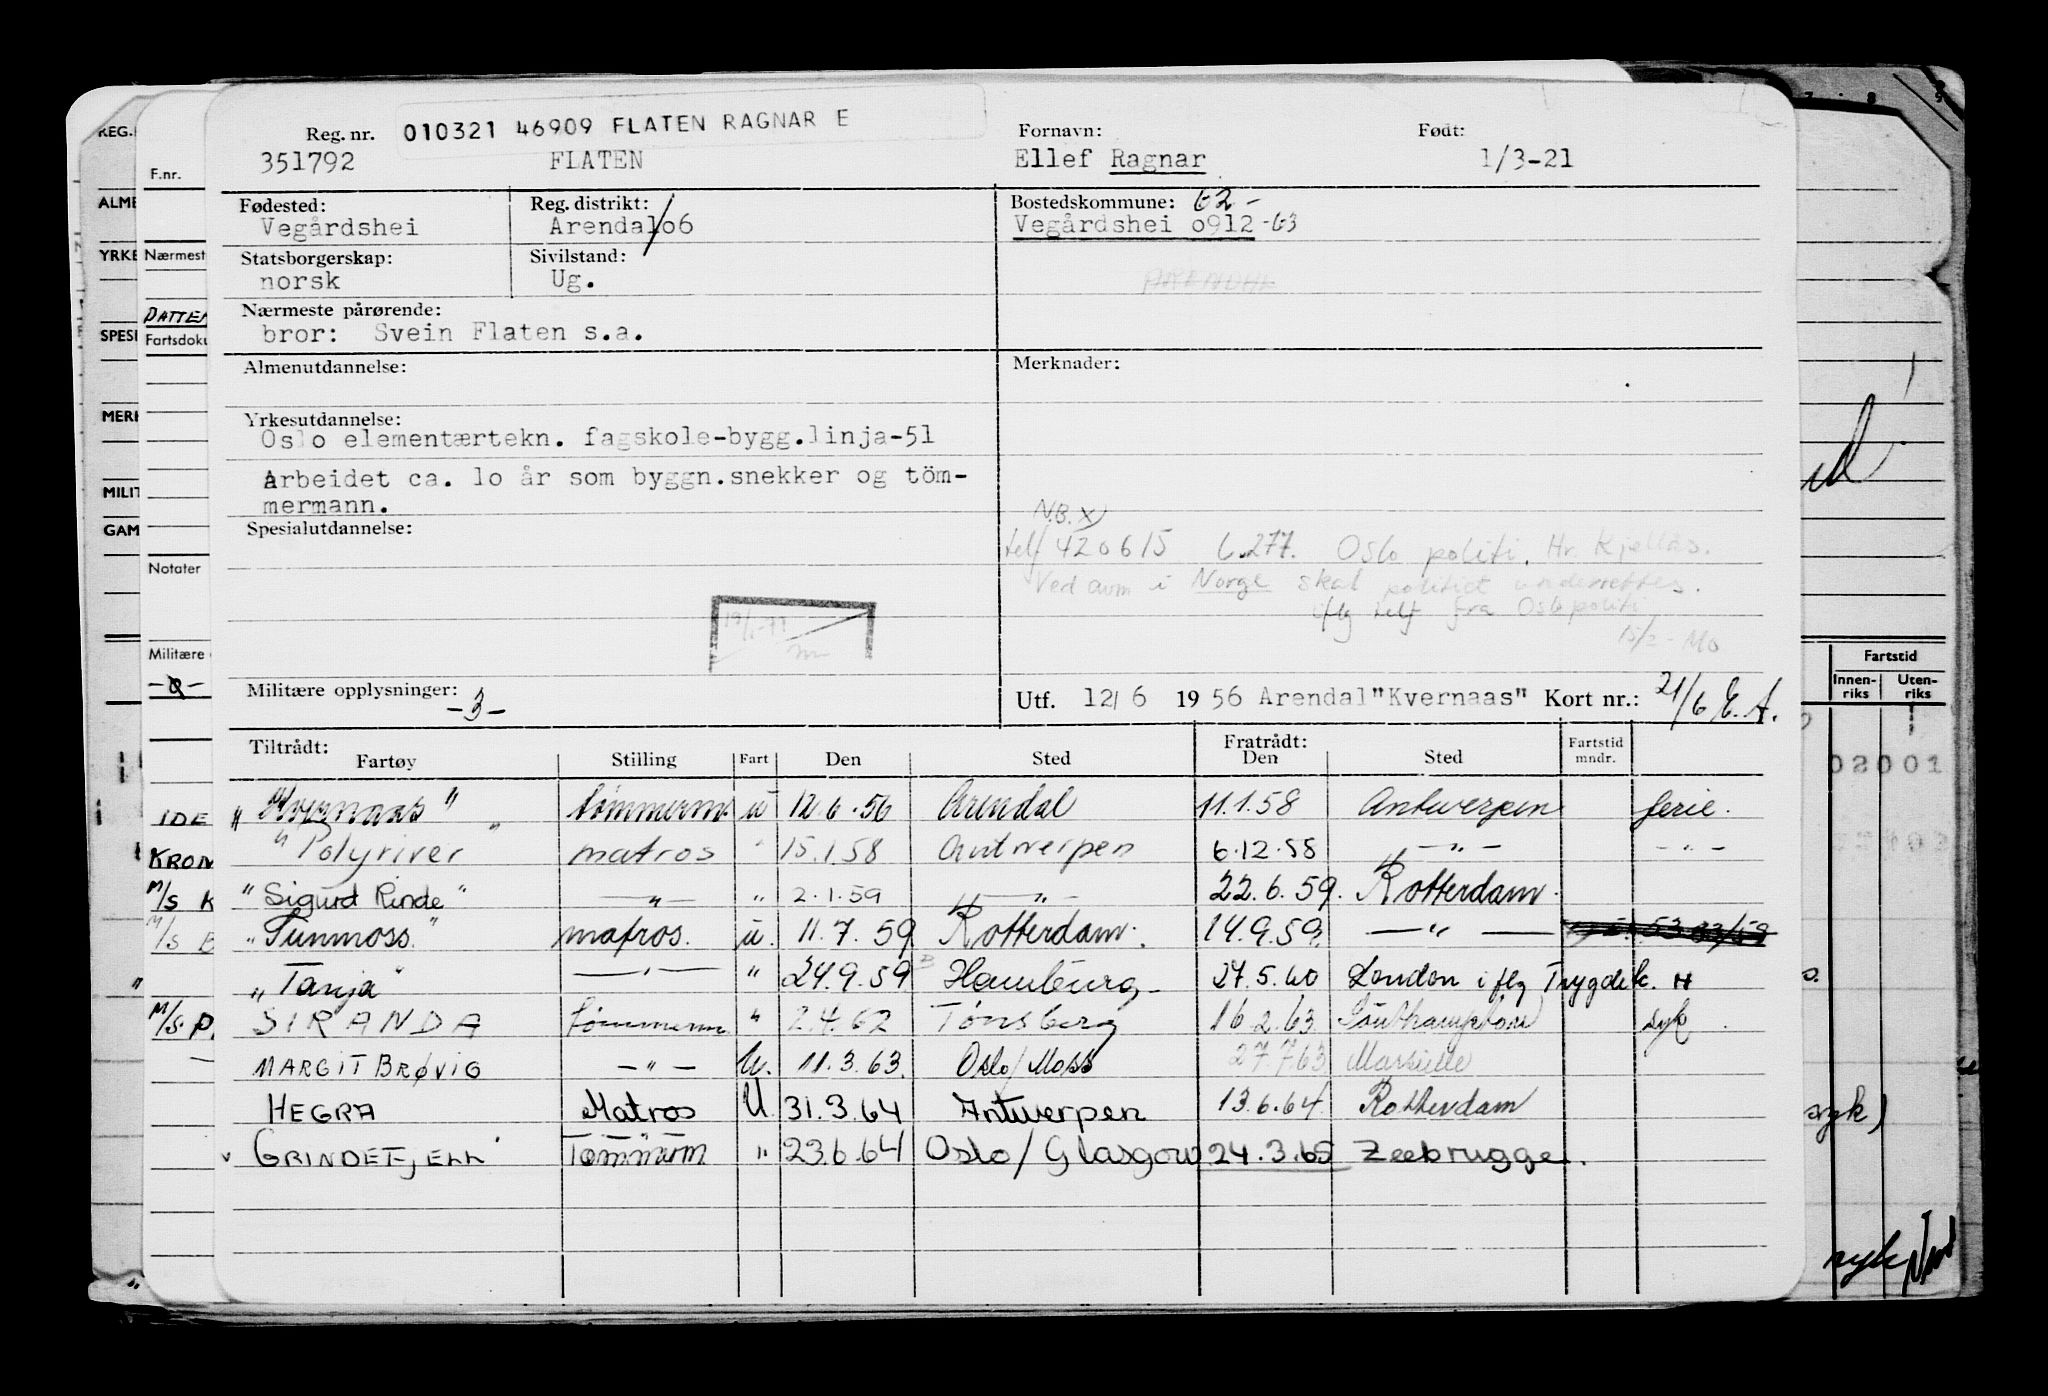 010321 46909 FLATEN RAGNAR E
Reg. nr. Fornavn: Født:
351792 FLATEN Ellef Ragnar 1/3-21
Fødested: Reg. distrikt: Bostedskommune: 62-
Vegårdshei Arendal/o6 Vegårdshei o912-63
Statsborgerskap: Sivilstand:
norsk Ug. ARENDAL
Nærmeste pårørende:
bror: Svein Flaten s.a.
Almenutdannelse: Merknader:
Yrkesutdannelse:
Oslo elementærtekn. fagskole-bygg.linja-51
Arbeidet ca. lo år som byggn.snekker og töm-
mermann.
N.B. x)
Spesialutdannelse:
telf 420615 l.277. Oslo politi. Hr. Kjellås.
Ved avm i Norge skal politiet underrettes.
iflg telf fra Oslo politi
15/2- Mo
Militære opplysninger: -3- Utf. 12/ 6 19 56 Arendal "Kvernaas" Kort nr.: 21/6 E. A.
Tiltrådt: Fratrådt: Fartstid
Fartøy Stilling Fart Den Sted Den Sted mndr.
"Kvernaas" tømmerm. u 12.6.56 Arendal 11.1.58 Antwerpen ferie.
"Polyriver" matros " 15.1.58 Antwerpen 6.12.58 -"- -"-
"Sigurd Rinde" -"- " 2.1.59 -"- 22.6.59. Rotterdam.
"Sunmoss." matros. u. 11.7.59 Rotterdam. 14.9.59. -"-
"Tanja" -"- " 24.9.59 Hamburg- 27.5.60 London iflg Trygdek. H
SIRANDA tømmerm " 2.4.62 Tønsberg 16.2.63 Southampton syk.
MARGIT BRØVIG -"- U. 11.3.63. Oslo/Moss 27.7.63 Marseille
HEGRA Matros U 31.3.64 Antwerpen 13.6.64 Rotterdam
GRINDEFJELL Tømmerm " 23.6.64 Oslo/Glasgow 24.3.65 Zeebrugge.
REG.
F.nr.
ALME
YRKE
Nærmest
DATTER
SPESI
Fartsdoku
MERK
MILIT
GAM
Notater
Militære
-0-
IDE
KRON
M/S K
M/S B
M/S P
Fartstid
Innen- Uten-
riks riks
02001
syk)
syk